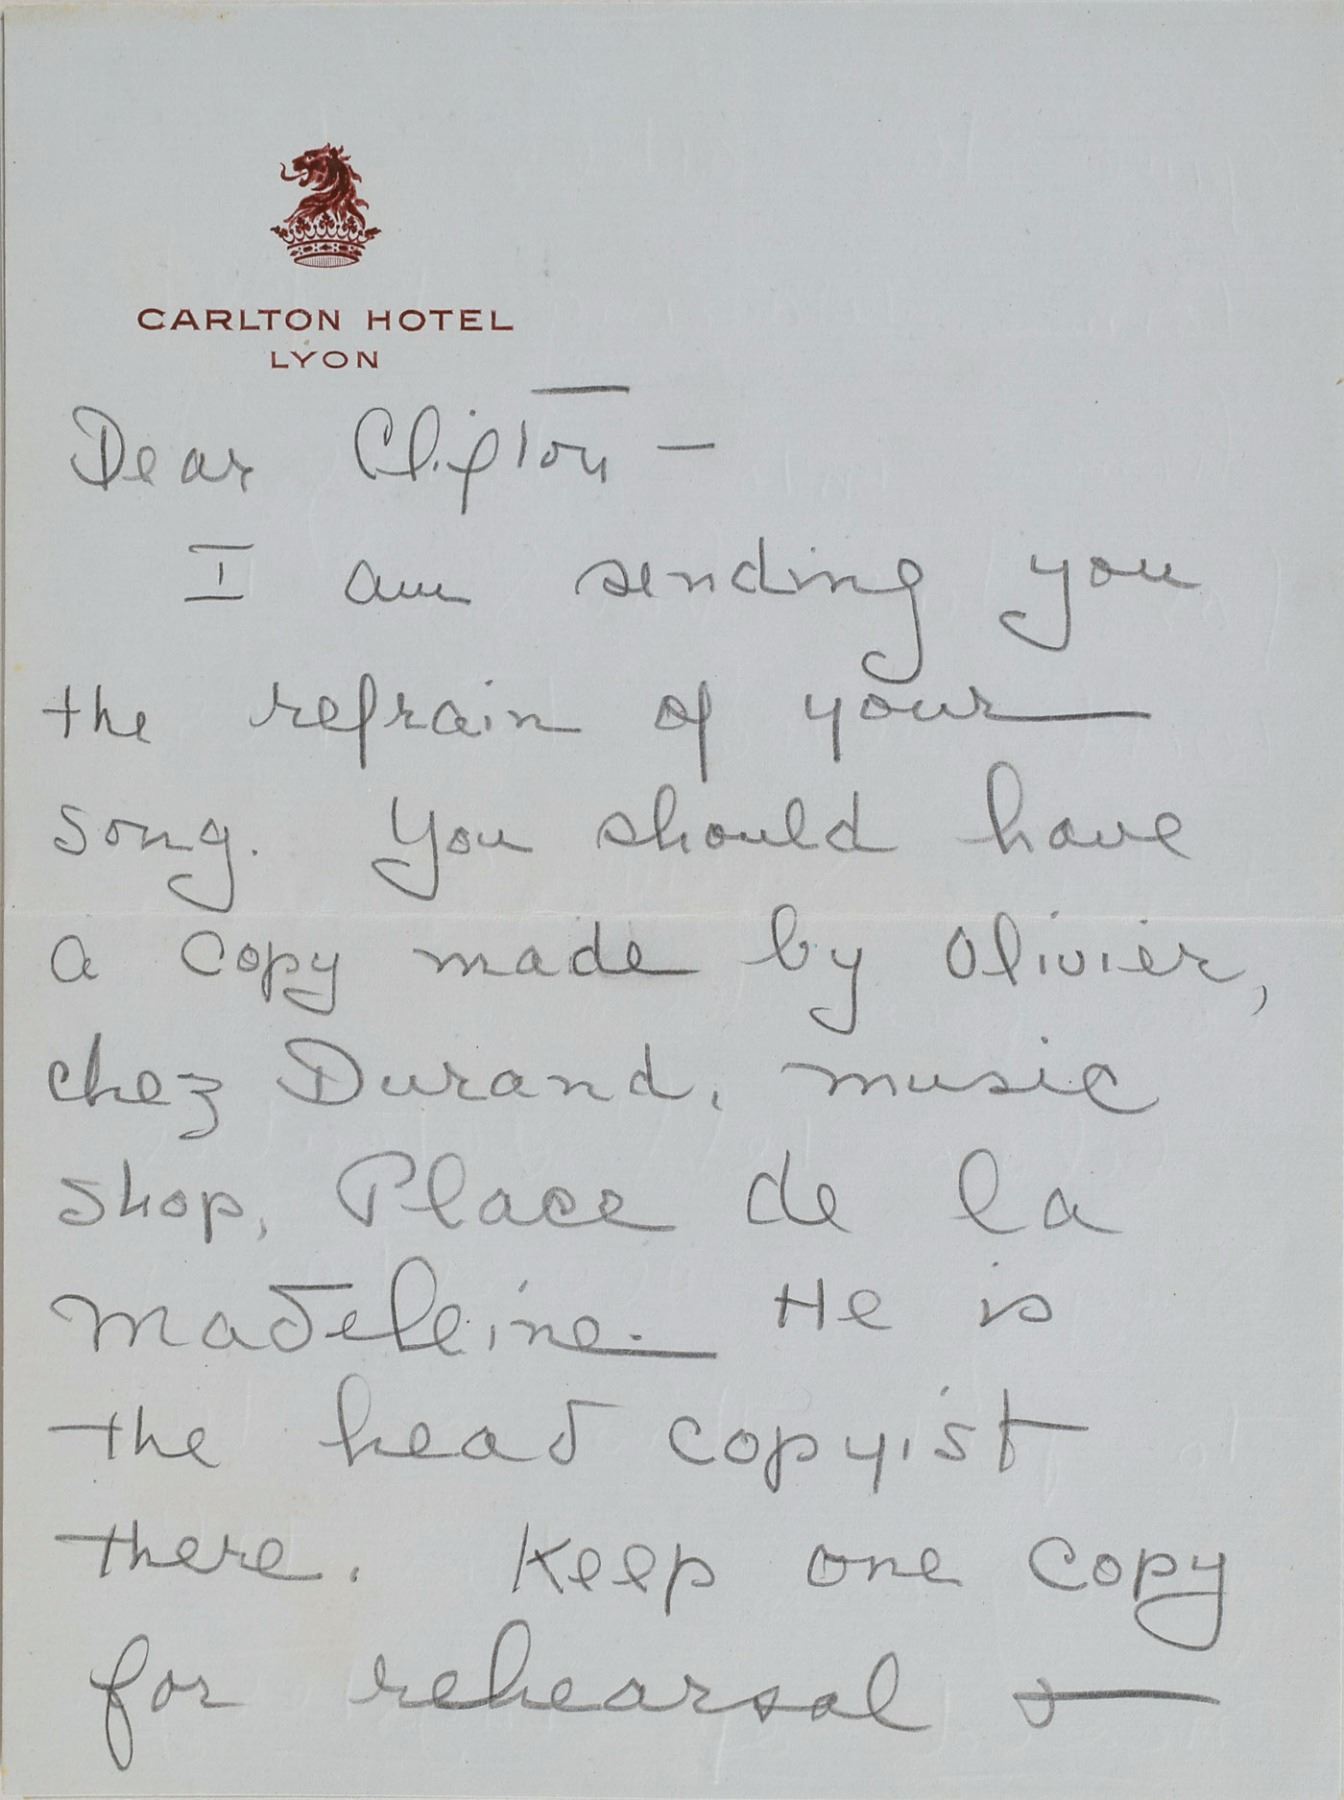 CARLTON HOTEL
LYON
Dear Clifton —
I am sending you
the refrain of your
song. You should have
a copy made by Olivier,
chez Durand, music
shop, Place de la
Madeleine. He is
the head copyist
there. Keep one copy
for rehearsal &